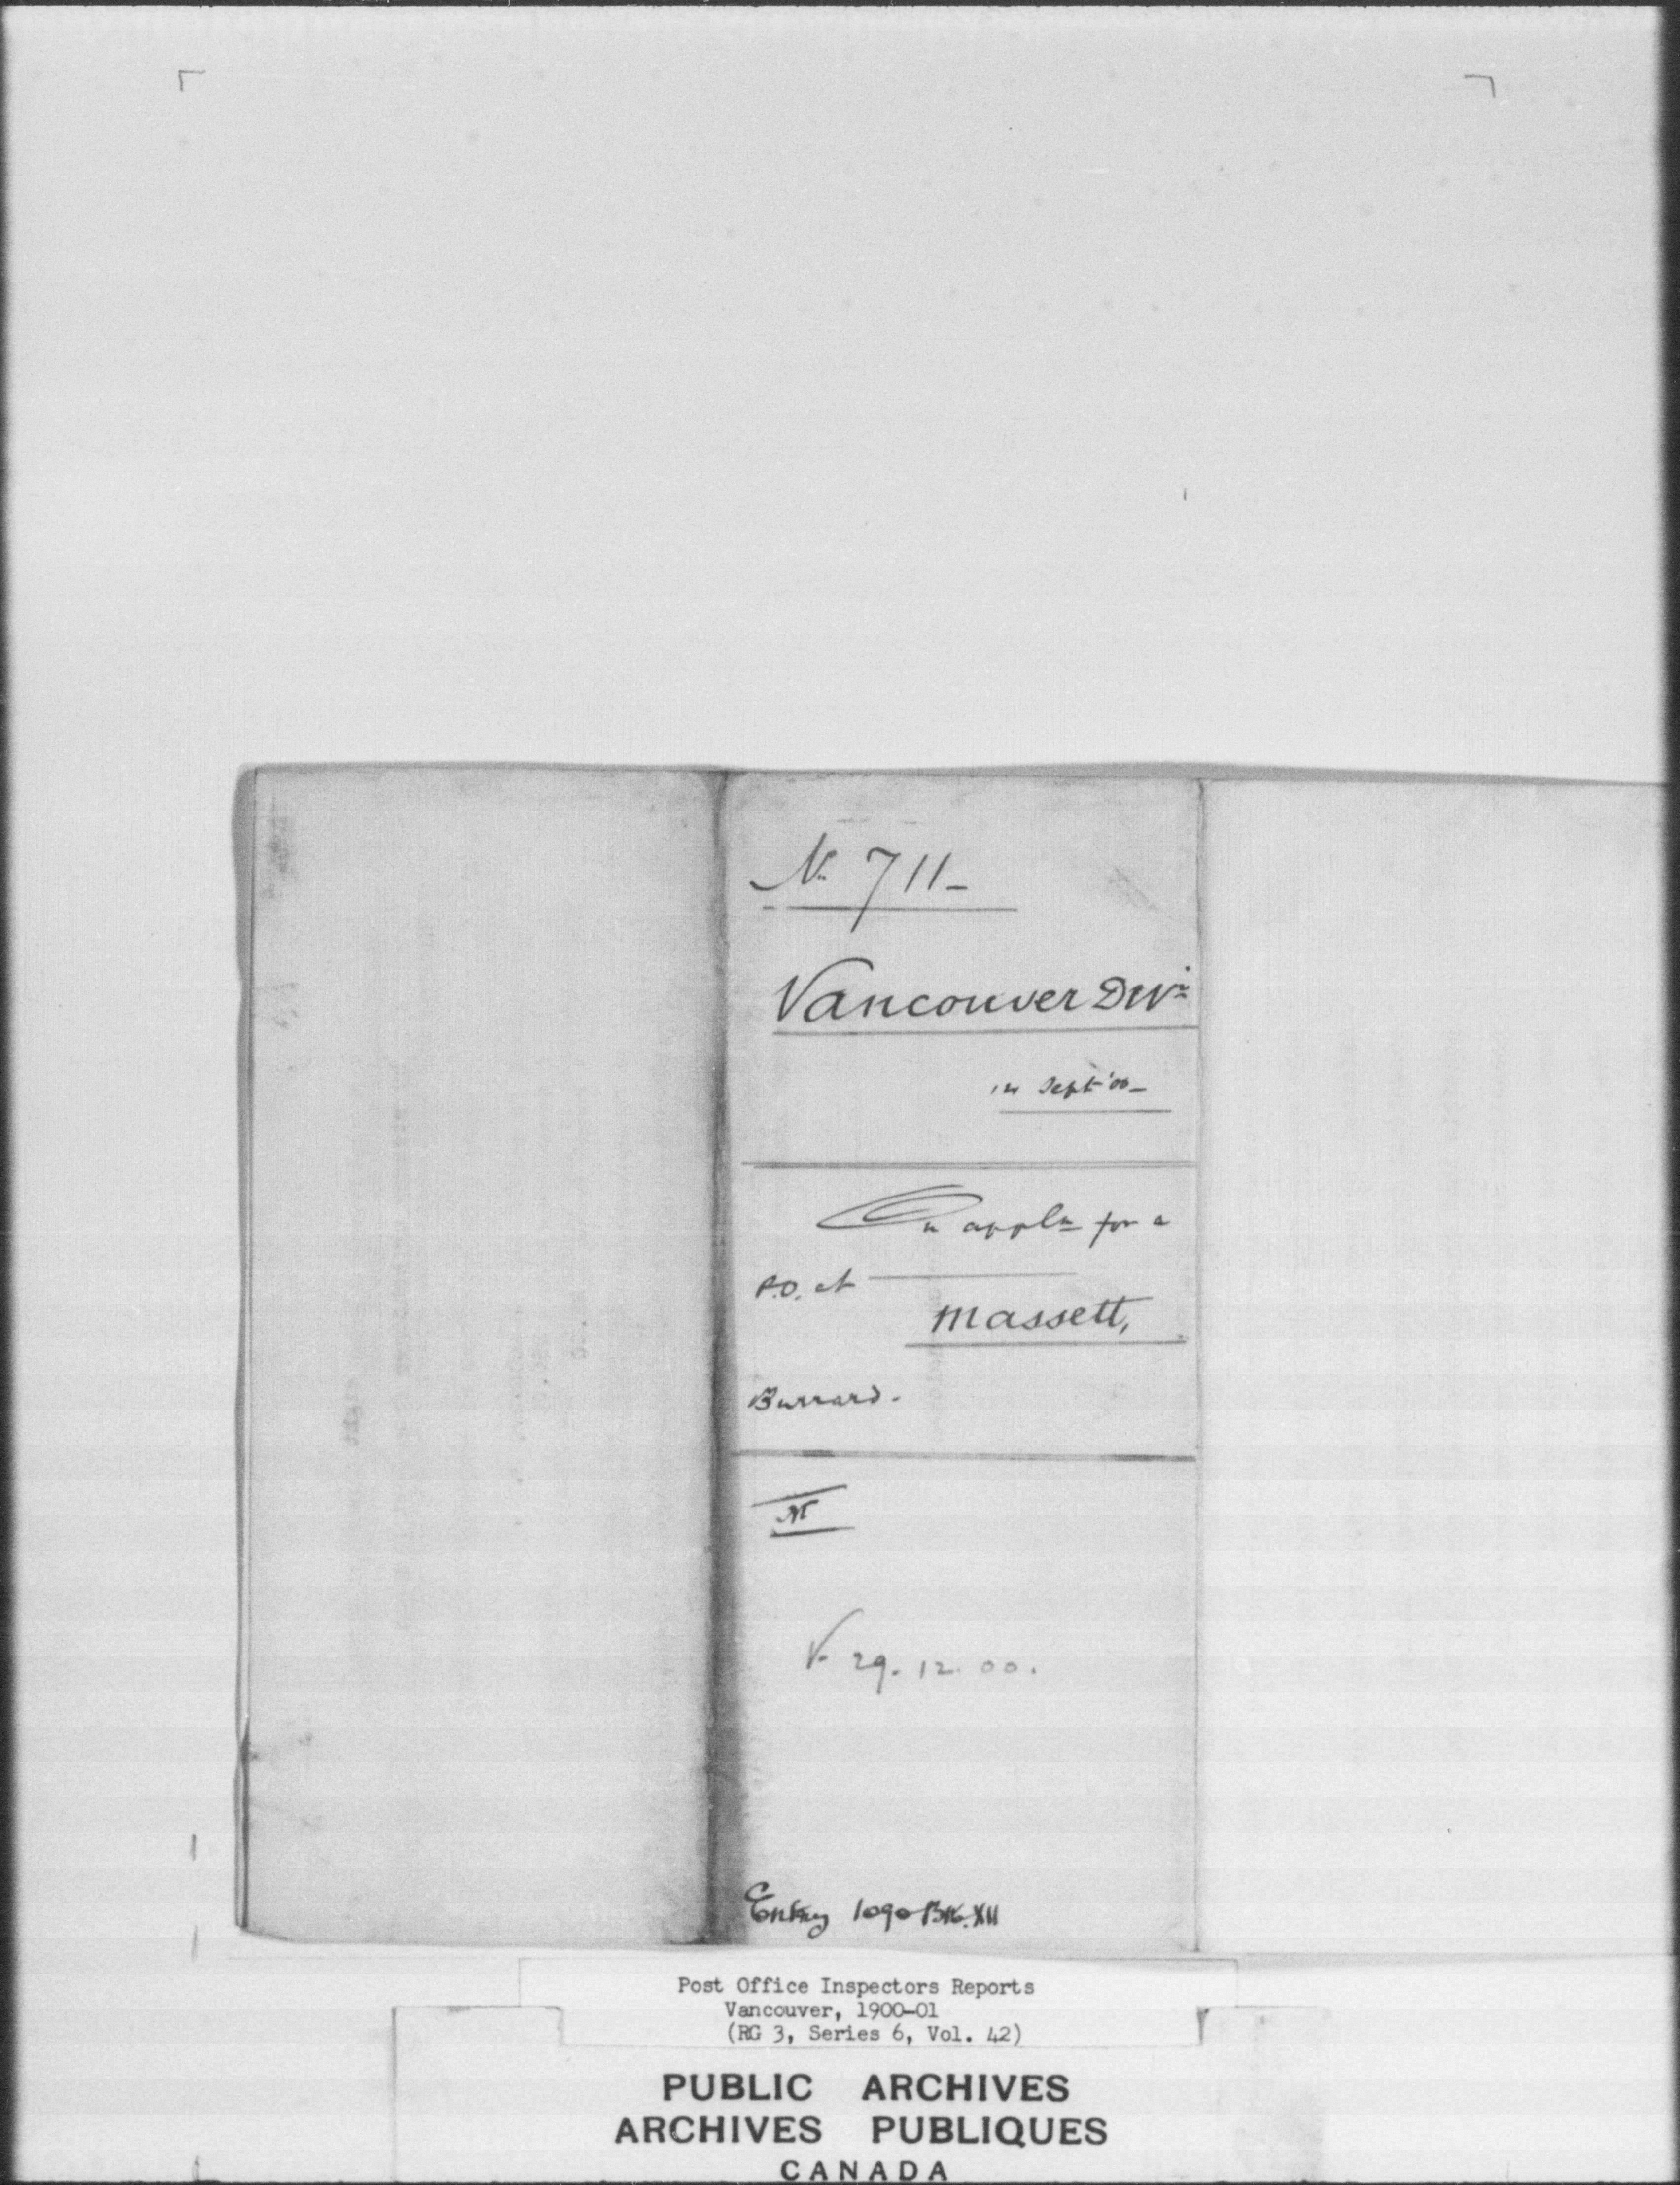 No. 711-
Vancouver Divn
14 Sept '00-
On appln for a
P.O. at
Massett,
Burrard.
V. 29. 12. 00.
Entry 1090 Bk. XII
Post Office Inspectors Reports
Vancouver, 1900-01
(RG 3, Series 6, Vol. 42)
PUBLIC ARCHIVES
ARCHIVES PUBLIQUES
CANADA